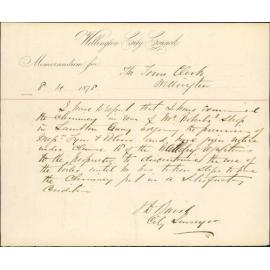 Wellington City Council
Memorandum for
The Town Clerk
Wellington
8 . 4 . 1898
I have to report that I have examined
the Chimney in one of Mr Shop
in Lambton Quay adjoining the premises of
and have given notice
under Clause 18 of the
to the proprietor to discontinue the use of
the until he has taken steps to put
the Chimney put in a satisfactory
Condition
City Surveyor